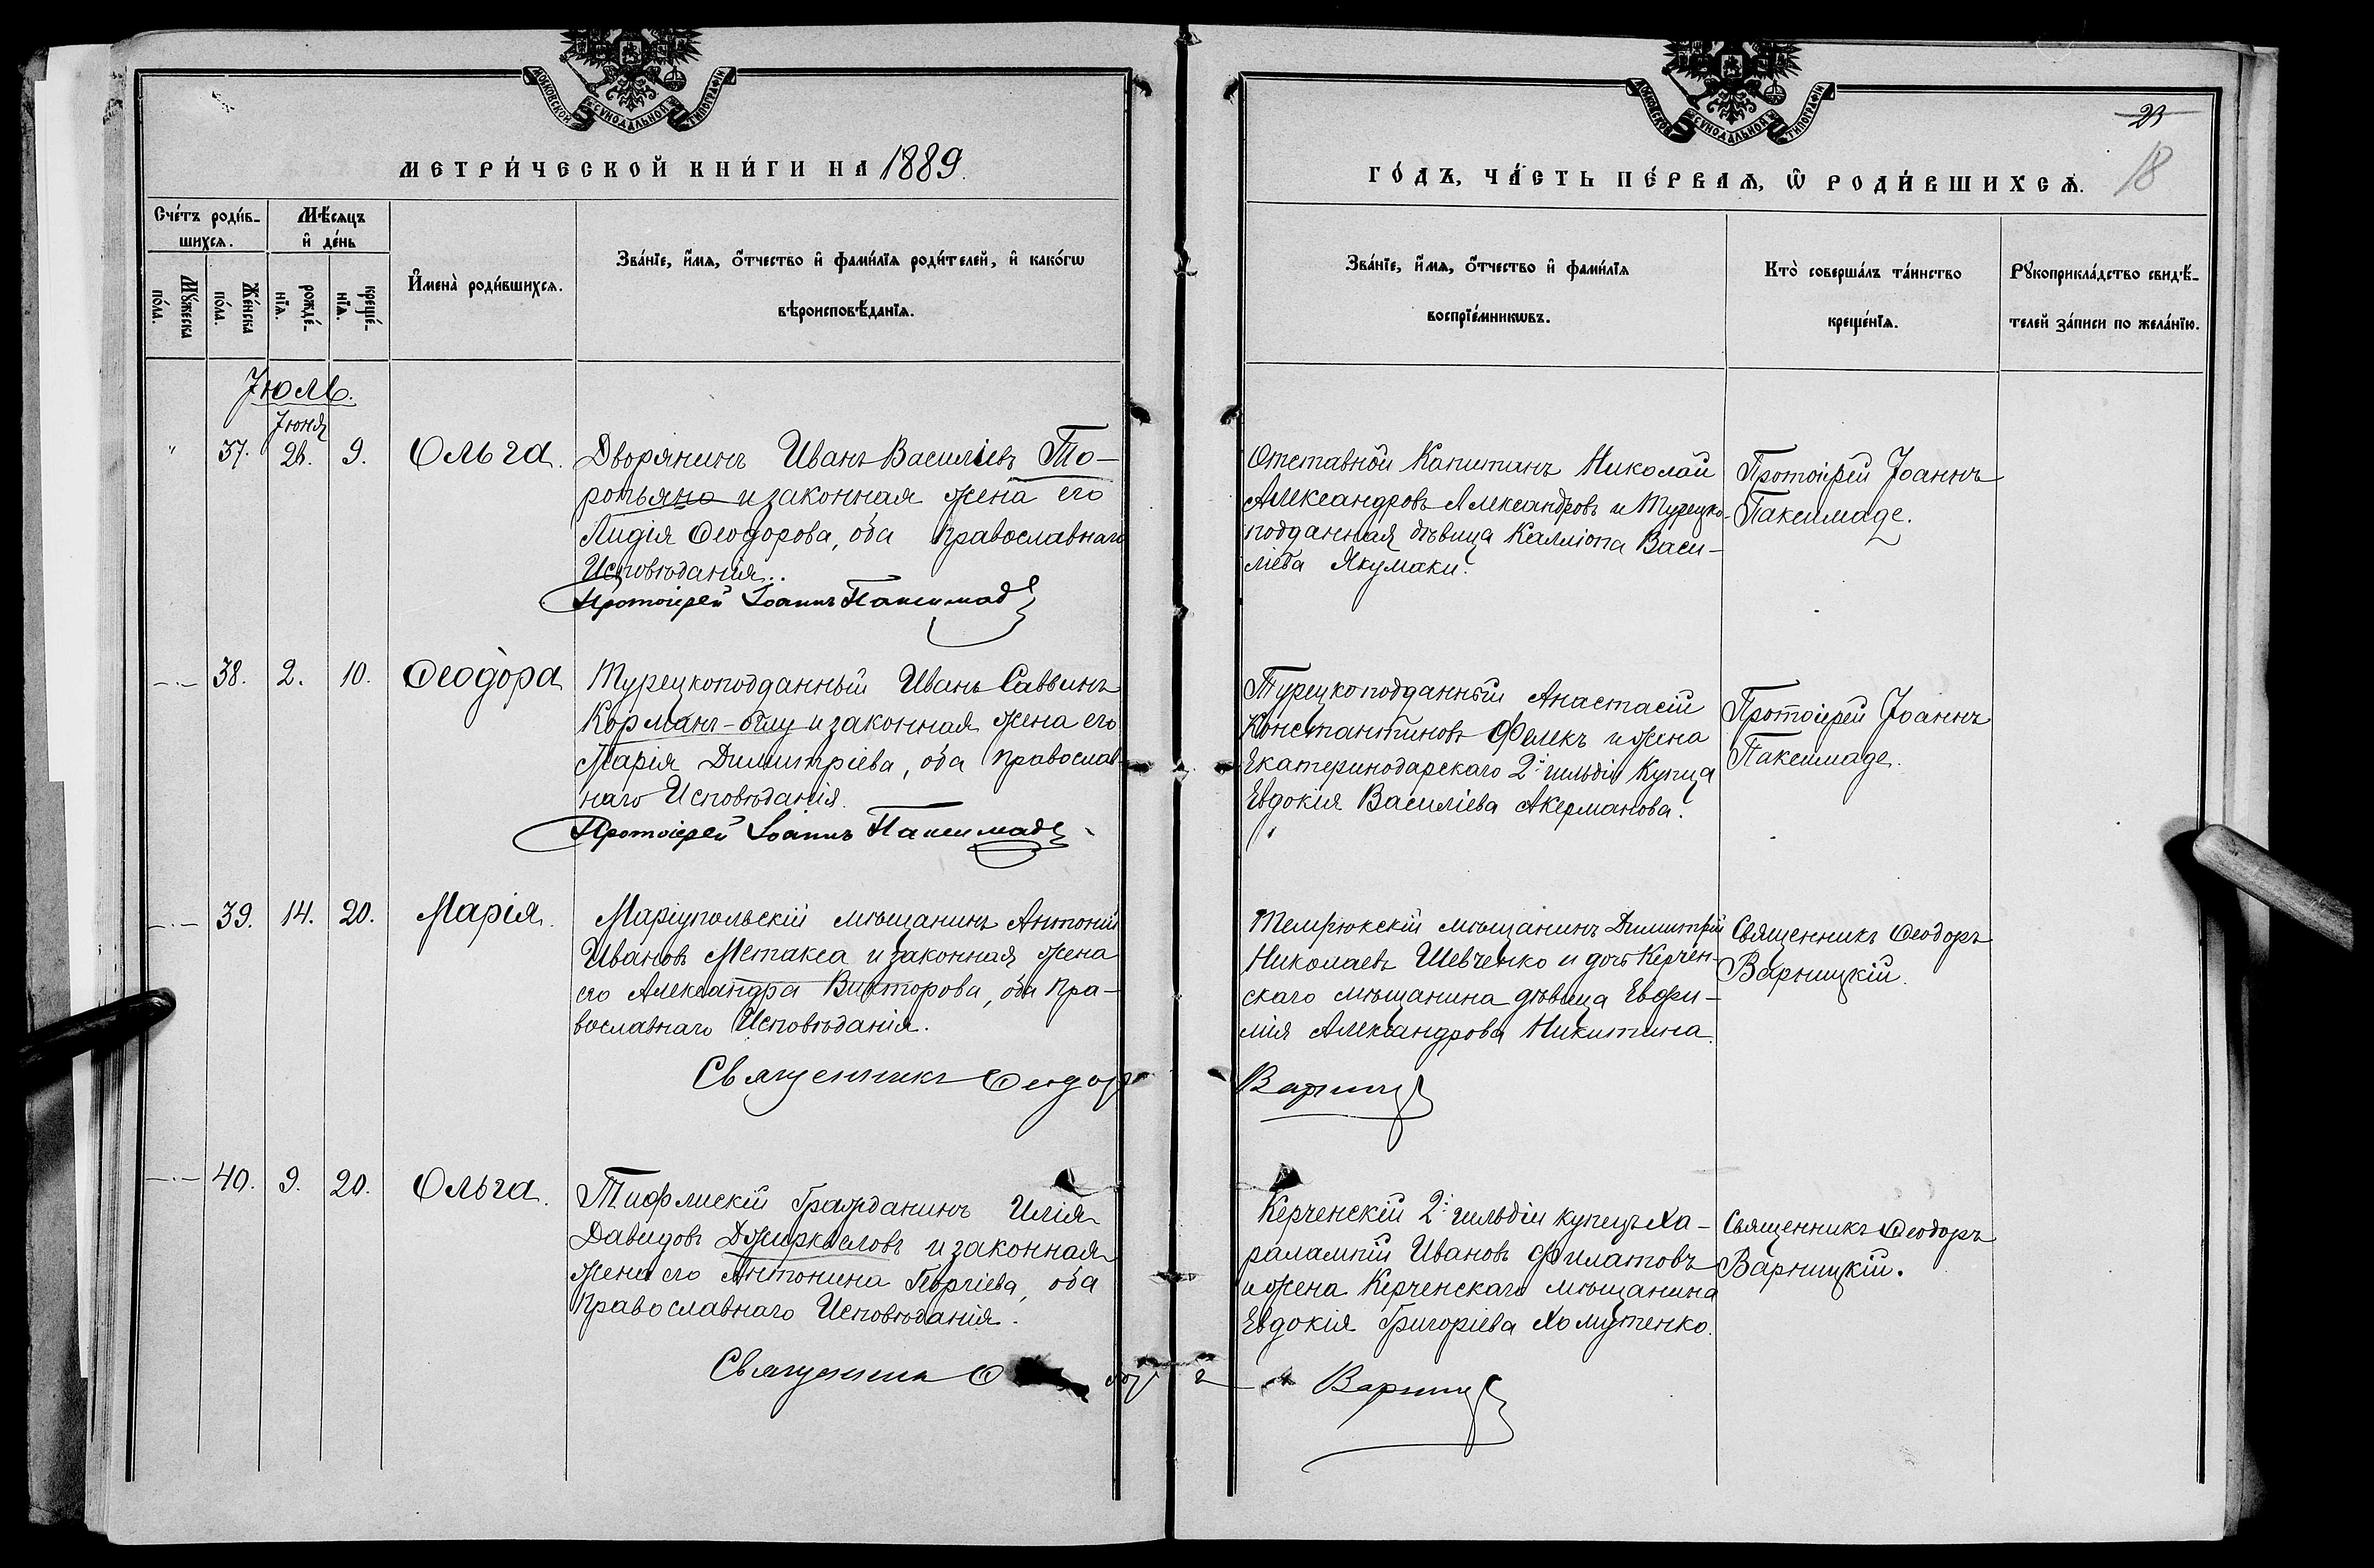 МОСКОВСКОЙ СѴНОДАЛЬНОЙ ТИПОГРАФІИ
МЕТРИ́ЧЕСКОЙ КНИ́ГИ НА 1889.
Сче́тъ роди́в-
шихсѧ.
Мѣ́сѧцъ
и҆ де́нь
Мꙋ́жеска
по́ла.
Же́нска
по́ла.
рожде́-
нїѧ.
креще́-
нїѧ.
И҆мена̀ роди́вшихсѧ.
Зва́нїе, и҆́мѧ, ѻ҆́тчество и҆ фами́лїѧ роди́телей, и҆ како́гѡ
вѣроисповѣ́данїѧ.
Іюль.
Іюня
" 37. 26. 9. Ольга.
Дворянинъ Иванъ Василіевъ То-
ропьяно и законная жена его
Лидія Ѳеодорова, оба православнаго
Исповѣданія.
Протоіерей Іоаннъ Паксимаде
—·— 38. 2. 10. Ѳеодора
Турецкоподданный Иванъ Саввинъ
Корманъ-оглу и законная жена его
Марія Димитріева, оба православ-
наго Исповѣданія.
Протоіерей Іоаннъ Паксимаде
—·— 39. 14. 20. Марія.
Маріупольскій мѣщанинъ Антоній
Ивановъ Метакса и законная жена
его Александра Викторова, оба Пра-
вославнаго Исповѣданія.
Священникъ Ѳеодоръ
—·— 40. 9. 20. Ольга.
Тифлискій Гражданинъ Илія
Давидовъ Джиркисловъ и законная
жена его Антонина Георгіева, оба
Православнаго Исповѣданія.
Священникъ
МОСКОВСКОЙ СѴНОДАЛЬНОЙ ТИПОГРАФІИ
23
18
ГО́ДЪ, ЧА́СТЬ ПЕ́РВАѦ, Ѽ РОДИ́ВШИХСѦ.
Зва́нїе, и҆́мѧ, ѻ҆́тчество и҆ фами́лїѧ
воспрїе́мникѡвъ.
Кто̀ соверша́лъ та́инство
креще́нїѧ.
Рꙋкоприкла́дство свидѣ́-
телей за́писи по жела́нїю.
Отставной Капитанъ Николай
Александровъ Александровъ и Турецко-
подданная дѣвица Калліопа Васи-
ліева Якумаки.
Протоіерей Іоаннъ
Паксимаде.
Турецкоподданный Анастасій
Константиновъ Фелекъ и жена
Екатеринодарскаго 2й гильдіи Купца
Евдокія Василіева Акерманова.
Протоіерей Іоаннъ
Паксимаде.
Темрюкскій мѣщанинъ Димитрій
Николаевъ Шевченко и дочь Керчен-
скаго мѣщанина дѣвица Евфи-
мія Александрова Никитина.
Священникъ Ѳеодоръ
Варницкій.
Варницкій
Керченскій 2й гильдіи купецъ Ха-
раламній Ивановъ Филатовъ
и жена Керченскаго мѣщанина
Евдокія Григоріева Хомутенко.
Священникъ Ѳеодоръ
Варницкій.
Варницкій